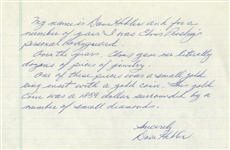 My name is Dave Hebler and for a
number of years I was Elvis Presley's
personal bodyguard.
Over the years Elvis gave me literally
dozens of pieces of jewelry.
One of these pieces was a small gold
ring inset with a gold coin. The gold
coin was a 1854 dollar surrounded by a
number of small diamonds.
Sincerely
Dave Hebler